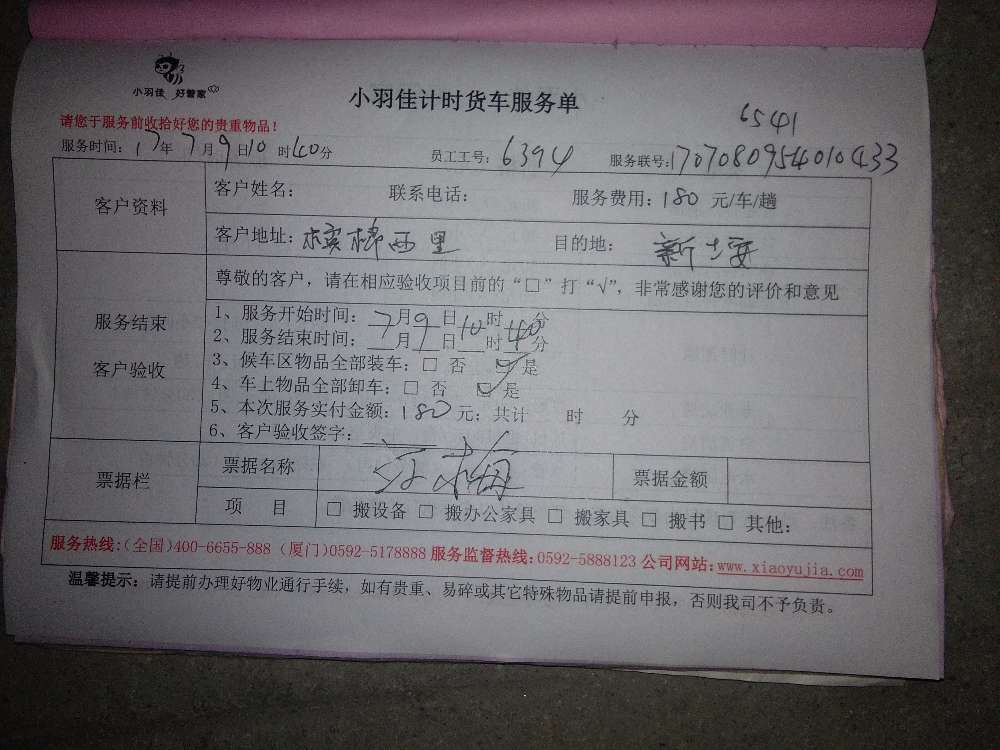 小羽佳 好管家
小羽佳计时货车服务单
6541
请您于服务前收拾好您的贵重物品！
服务时间：17年7月9日10时40分 员工工号：6394 服务联号：1707080954010433
客户资料
客户姓名： 联系电话： 服务费用：180 元/车/趟
客户地址：槟榔西里 目的地：新垵
服务结束
客户验收
尊敬的客户，请在相应验收项目前的“□”打“√”，非常感谢您的评价和意见
1、服务开始时间：7月9日10时40分
2、服务结束时间：__月__日__时__分
3、候车区物品全部装车：□ 否 ☑ 是
4、车上物品全部卸车：□ 否 ☑ 是
5、本次服务实付金额：180元；共计 时 分
6、客户验收签字：
票据栏
票据名称 票据金额
项 目 □ 搬设备 □ 搬办公家具 □ 搬家具 □ 搬书 □ 其他：
服务热线：（全国）400-6655-888（厦门）0592-5178888 服务监督热线：0592-5888123 公司网站：www.xiaoyujia.com
温馨提示：请提前办理好物业通行手续，如有贵重、易碎或其它特殊物品请提前申报，否则我司不予负责。